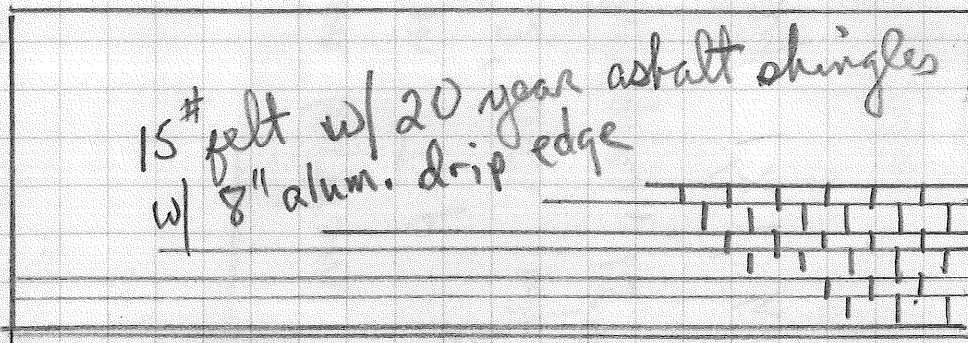 15# felt w/ 20 year ashalt shingles
w/ 8" alum. drip edge